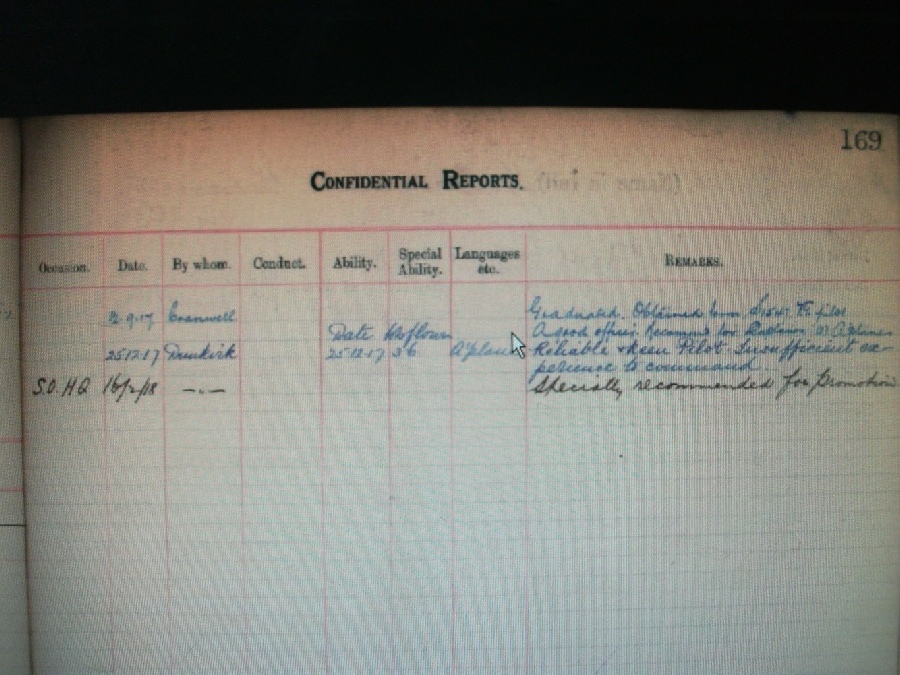 169
CONFIDENTIAL REPORTS.
Occasion. Date. By whom. Conduct. Ability. Special Ability. Languages etc. REMARKS.
9.17 Cranwell Graduated. Obtained
Date Hrs flown A good officer. Recommd for
25.12.17 Dunkirk 25.12.17 36 A'plane Reliable & keen Pilot. Insufficient ex-
perience to command.
S.O.H.Q 16/2/18 —.— Specially recommended for promotion